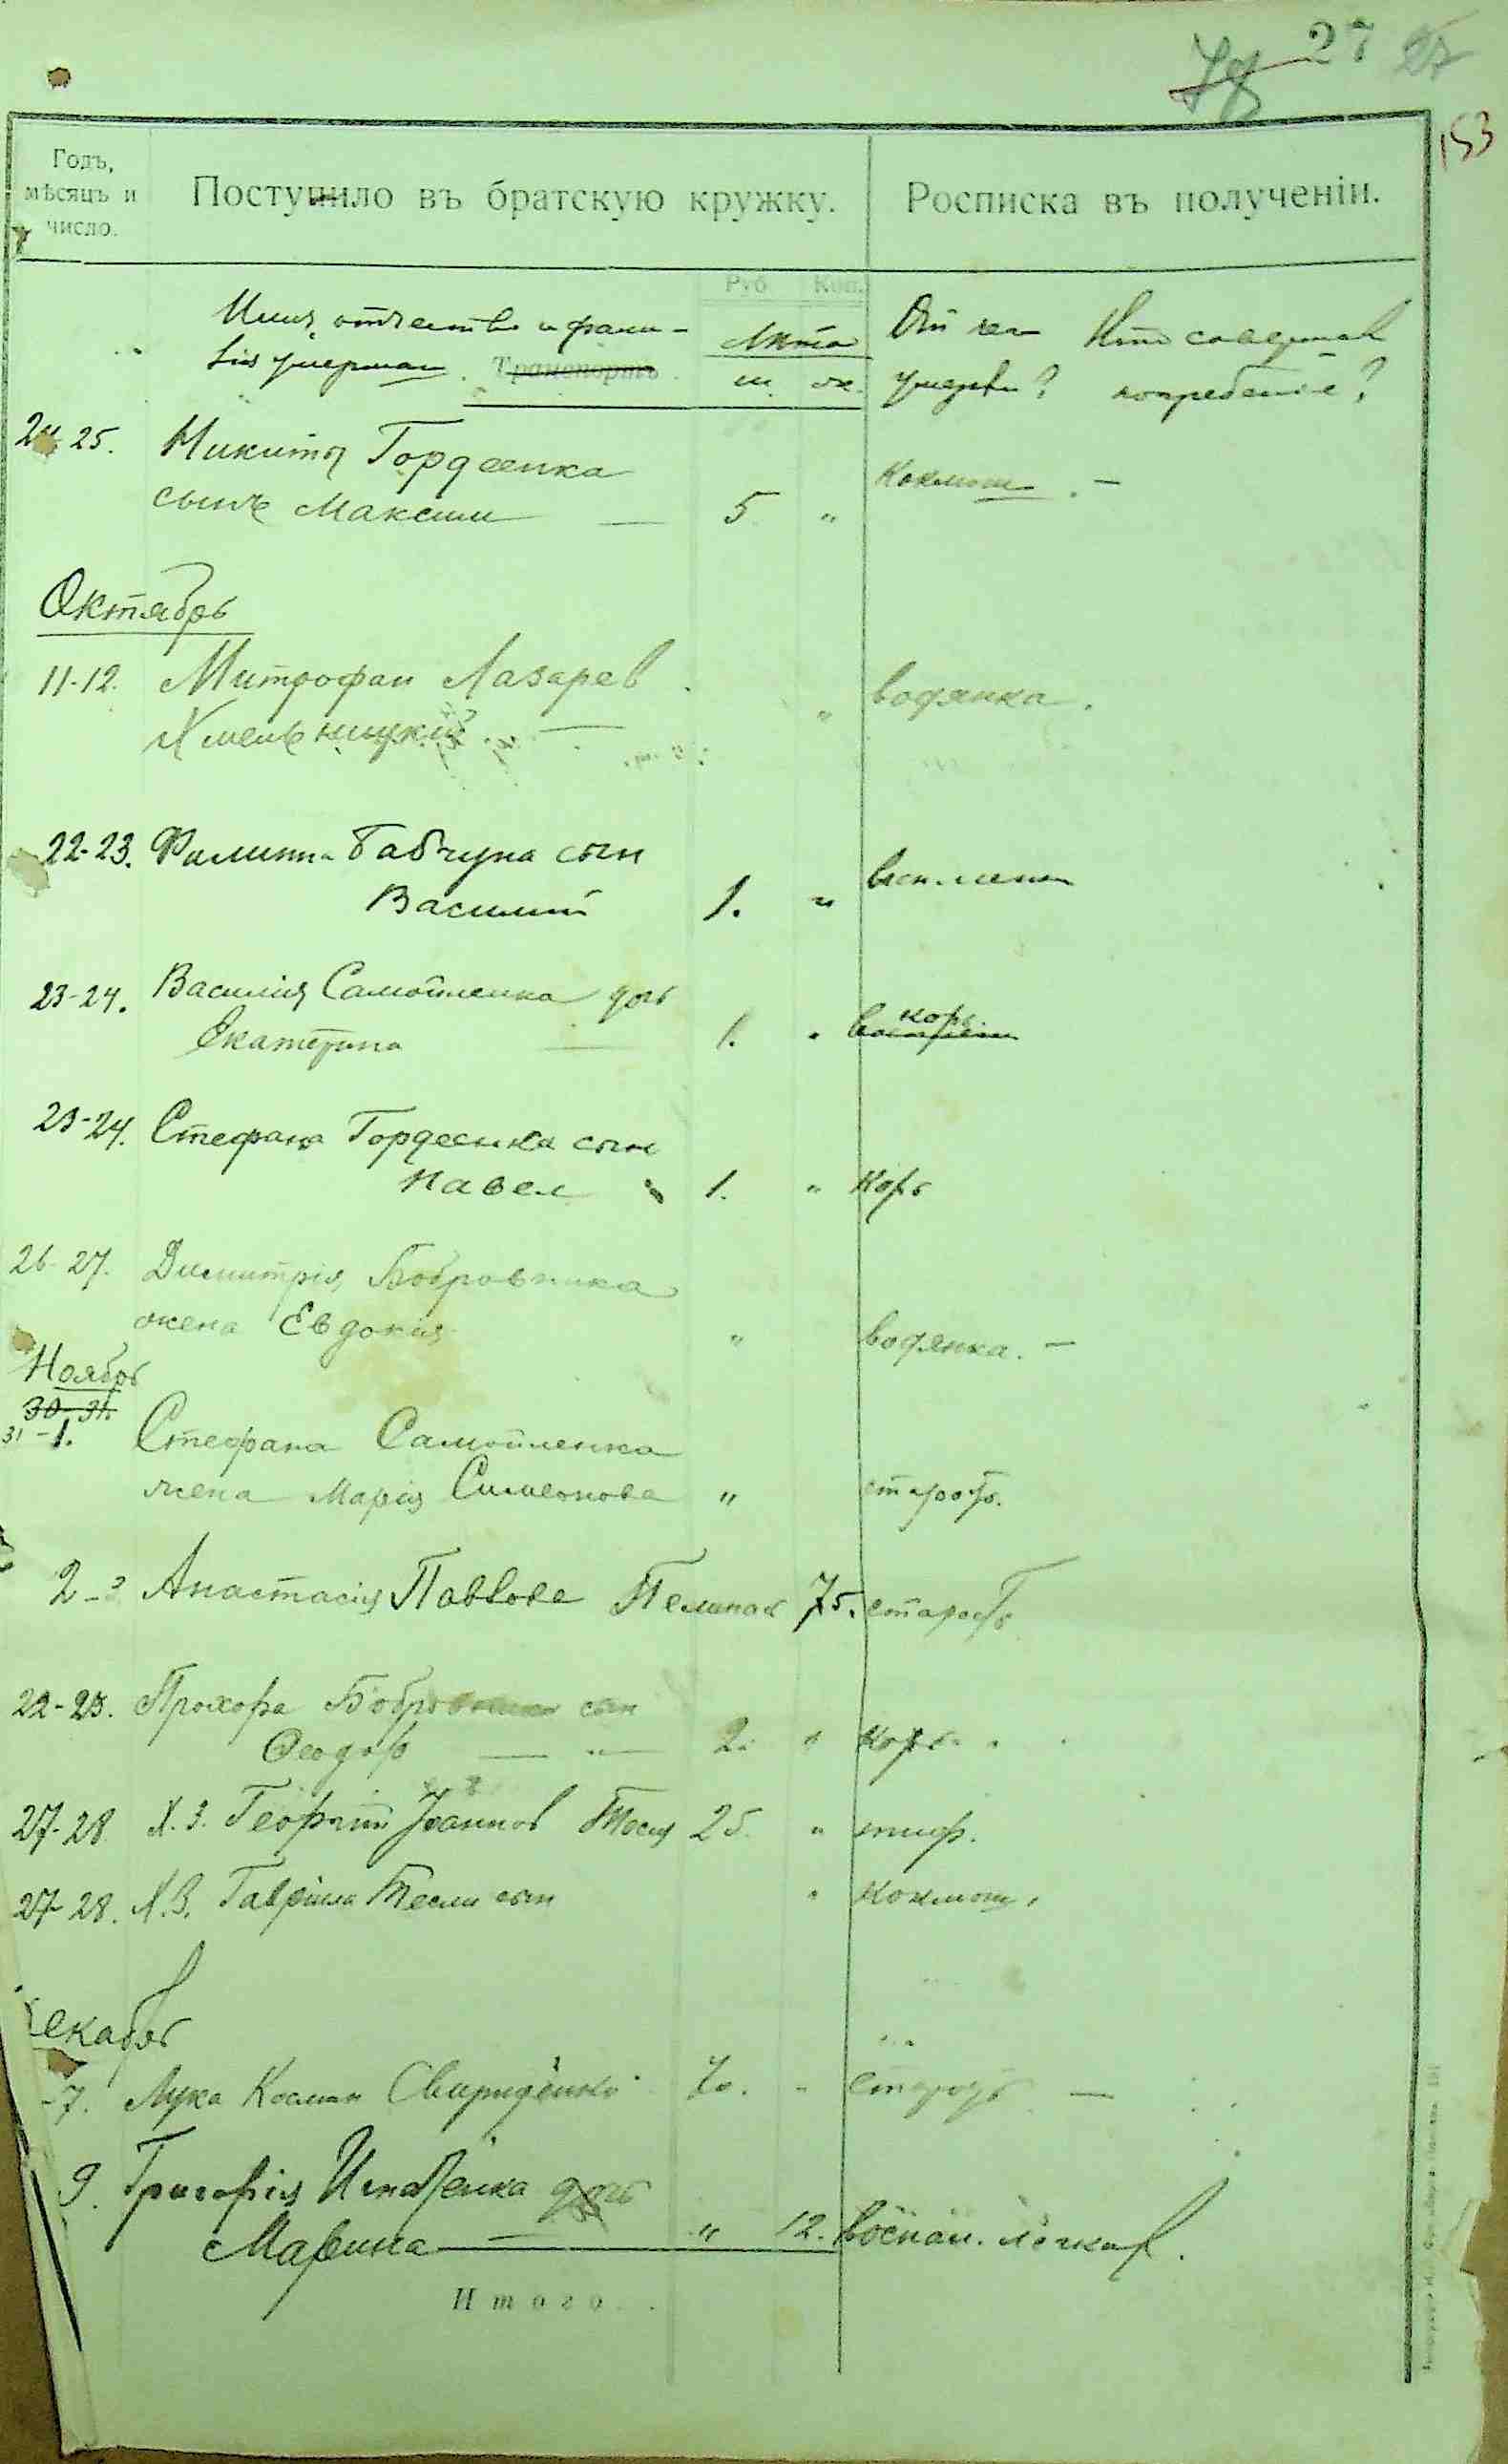 27 27
153
Годъ, мѣсяцъ и число.
Поступило въ братскую кружку.
Росписка въ полученіи.
Руб. Коп.
Имя, отчество и фами-
лія умерших. Транспортъ.
Лѣта
м. ж.
От чего умерли?
Кто совершал погребеніе?
25. Никиты Гордеенка
сынъ Максим — 5 "
Коклюш. —
Октябрь
11-12. Митрофан Лазарев
Хмельницкій — "
водянка.
22-23. Филиппа Бабчука сын
Василий 1. "
23-24. Василія Самойленка дочь
Екатерина — 1. "
корь.
23-24. Стефана Гордеенка сын
Павел 1. " Корь
26-27. Димитрія Бобровника
жена Евдокия "
водянка. —
Ноябрь
30-31.
31-1. Стефана Самойленка
жена Марія Симеонова " старость.
2-3 Анастасия Павлова 75. старость
22-23. Прохора Бобровника сын
Феодор — " — 2. " корь.
27-28 Х.З. Георгий Іоаннов Тесля 25. " тиф.
27-28. Х.З. Гавріила Тесли сын " коклюш.
екабрь
-7. Лука Косман Свириденко 70. " старость —
9. Григорія Игнатенка дочь
Марина — " 12. воспал. легких.
Итого.